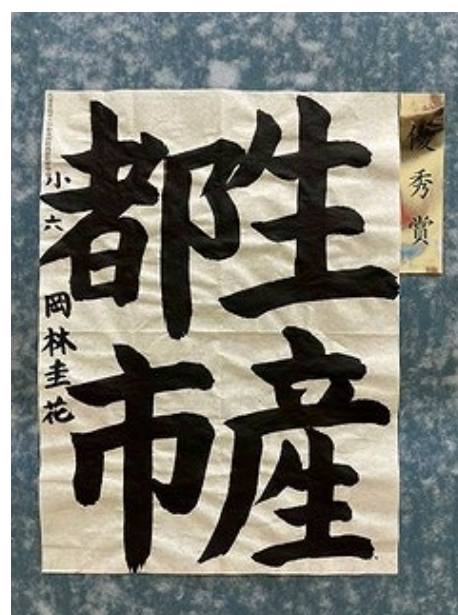 優秀賞
生産
都市
小六 岡林圭花